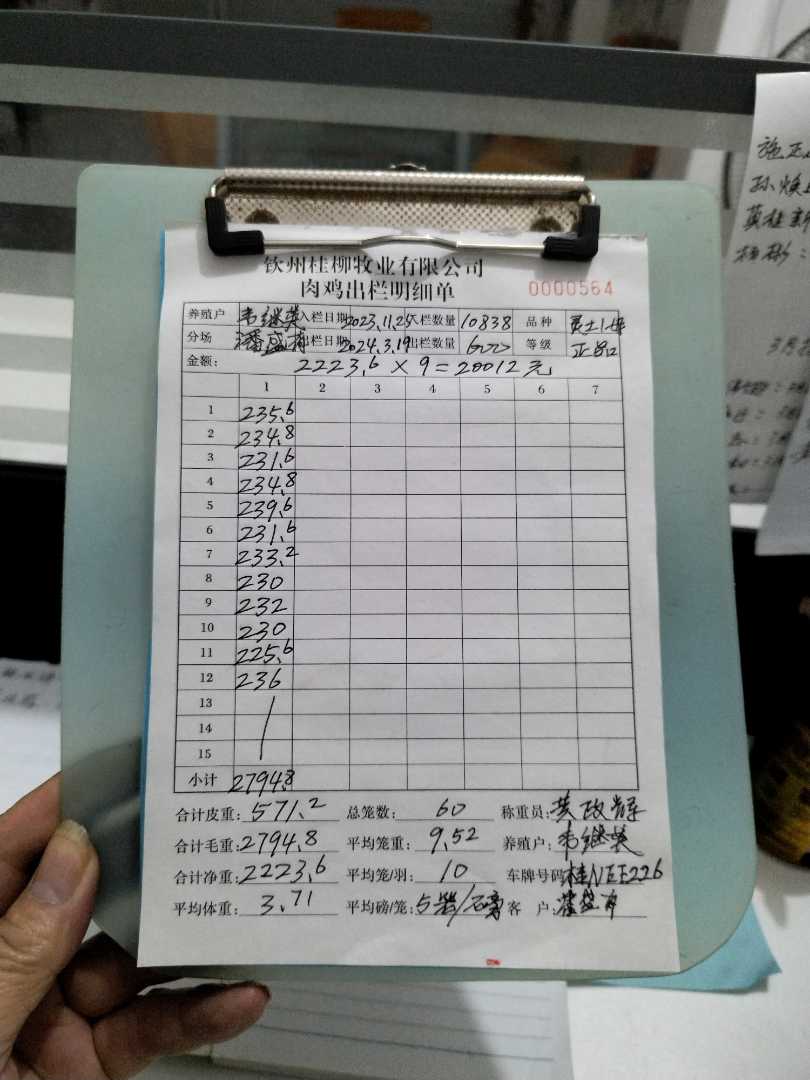 钦州桂柳牧业有限公司
肉鸡出栏明细单 0000564
养殖户 韦继英 入栏日期 2023.11.25 入栏数量 10838 品种
分场 出栏日期 2024.3.19 出栏数量 600 等级 正品
金额： 2223.6 × 9 = 20012元
1 2 3 4 5 6 7
1 235.6
2 234.8
3 231.6
4 234.8
5 239.6
6 231.6
7 233.2
8 230
9 232
10 230
11 225.6
12 236
13
14
15
小计 2794.8
合计皮重: 571.2 总笼数: 60 称重员: 黄政辉
合计毛重: 2794.8 平均笼重: 9.52 养殖户: 韦继英
合计净重: 2223.6 平均笼/羽: 10 车牌号码:
平均体重: 3.71 平均磅/笼: 客 户:
3月